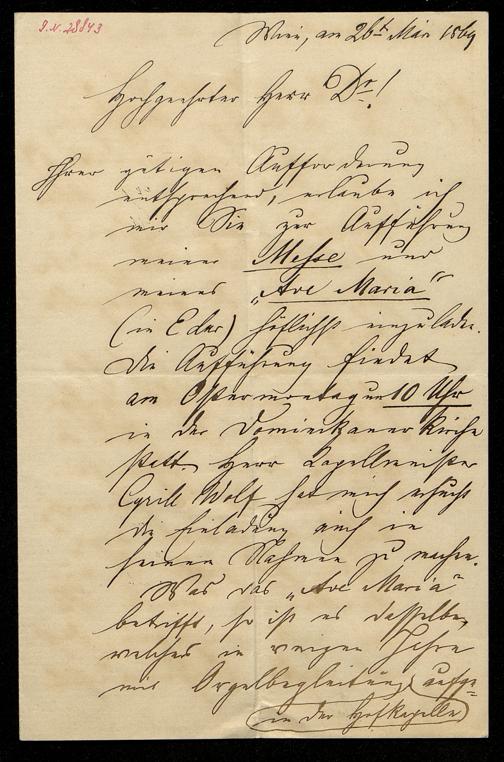 I.N. 28843
Wien, am 26t Mär 1869
Hochgeehrter Herr Dr!
Ihrer gütigen Aufforderung
entsprechend, erlaube ich
mir Sie zur Aufführung
meiner Messe und
meines „Ave Maria“
(in E dur) höflichst einzuladen.
Die Aufführung findet
am Ostermontag um 10 Uhr
in der Dominikanerkirche
statt. Herr Kapellmeister
Cyrill Wolf hat mich ersucht
die Einladung auch in
seinem Nahmen zu machen.
Was das „Ave Maria“
betrifft, so ist es dasselbe,
welches in Jahre
mit Orgelbegleitung aufge-
in der Hofkapelle